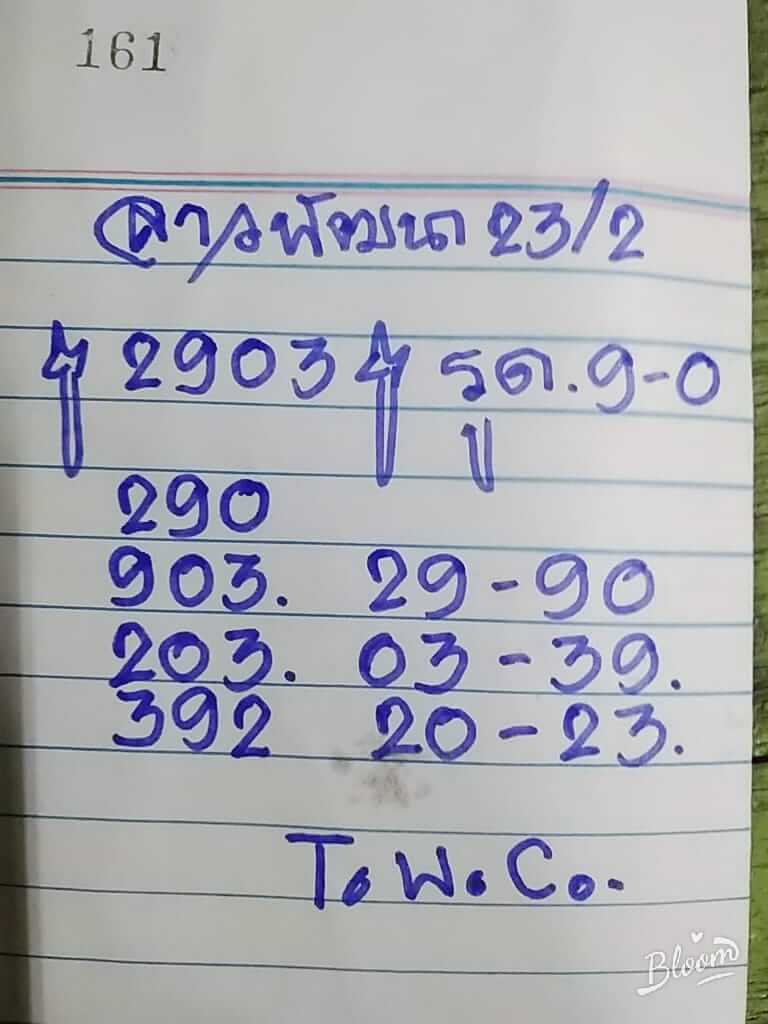 161
ลาวพัฒนา 23/2
2903 รูด.9-0
290
903. 29-90
203. 03-39.
392 20-23.
T.W.C..
Bloom